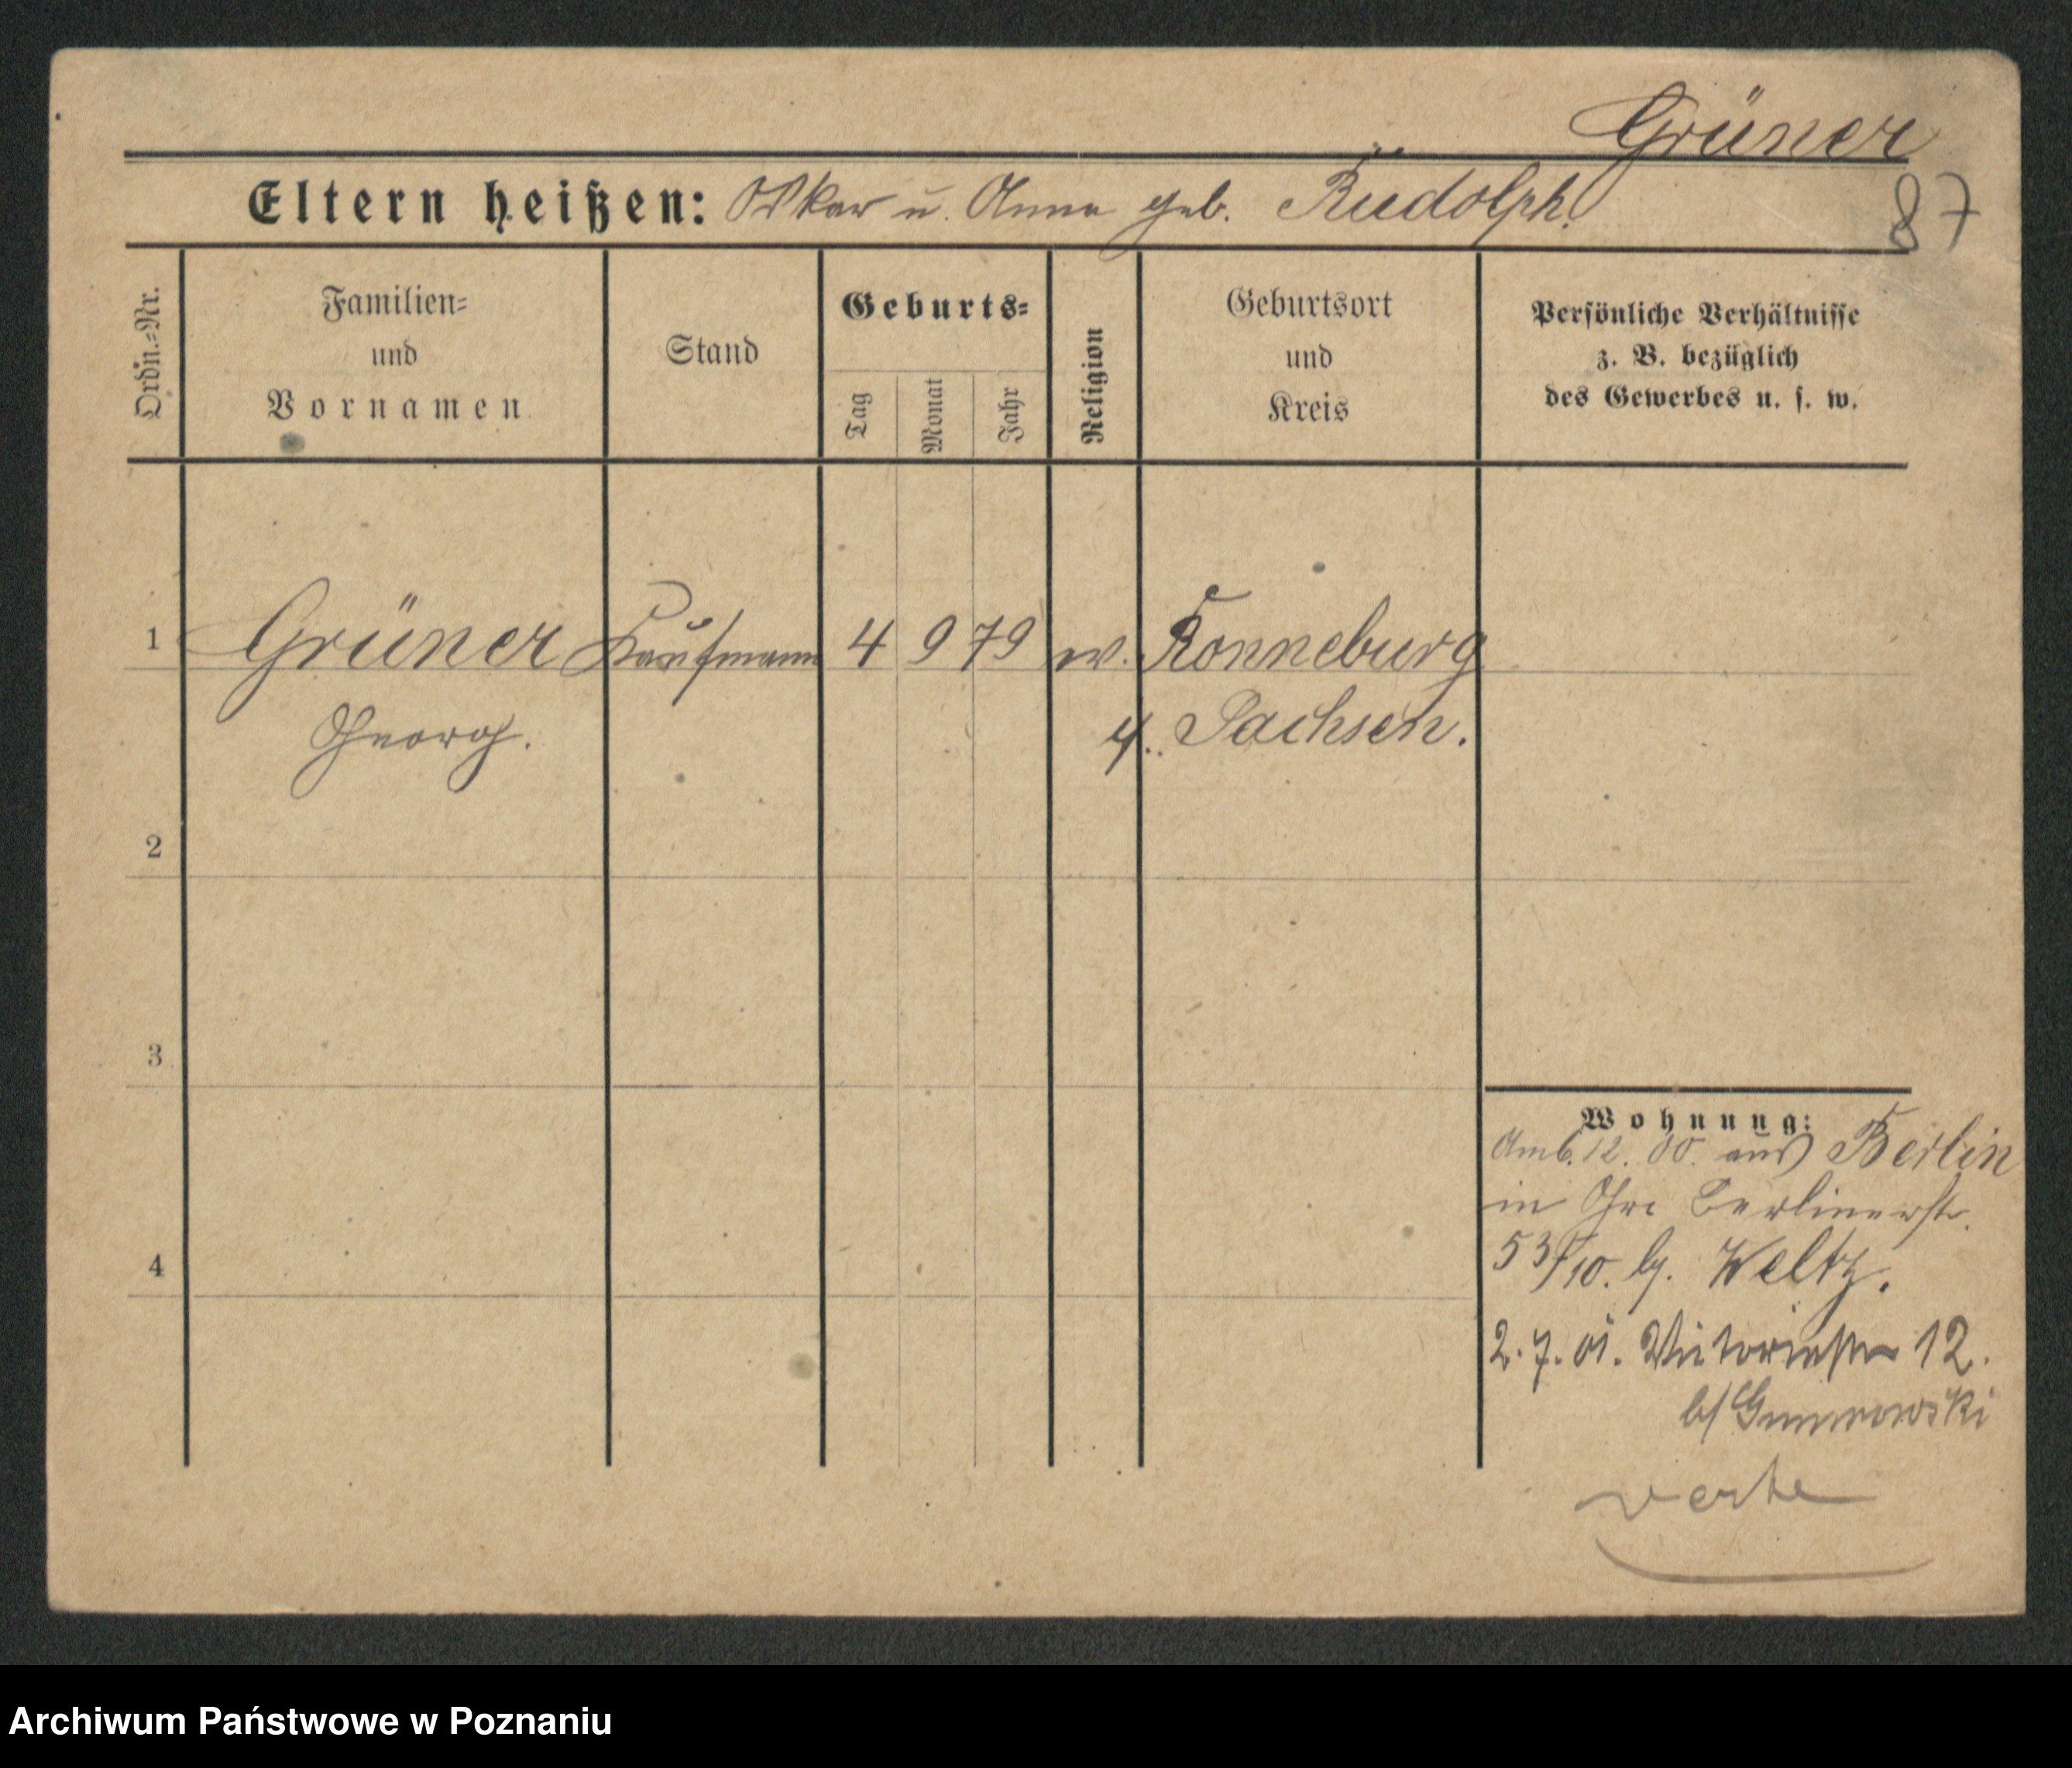 Grüner
87
Eltern heißen: Oskar u. Anna geb. Rudolph.
Ordin.=Nr.
Familien=
und
Vornamen
Stand
Geburts=
Tag
Monat
Jahr
Religion
Geburtsort
und
Kreis
Persönliche Verhältnisse
z. B. bezüglich
des Gewerbes u. s. w.
1 Grüner Kaufmann 4 9 79 ev. Ronneburg
Georg. Sachsen.
2
3
4
Wohnung:
Am 6. 12. 00. aus Berlin
in Berlinerstr.
53/10. by. Weltz.
2. 7. 01. Victoriastr 12.
b/
verte
Archiwum Państwowe w Poznaniu